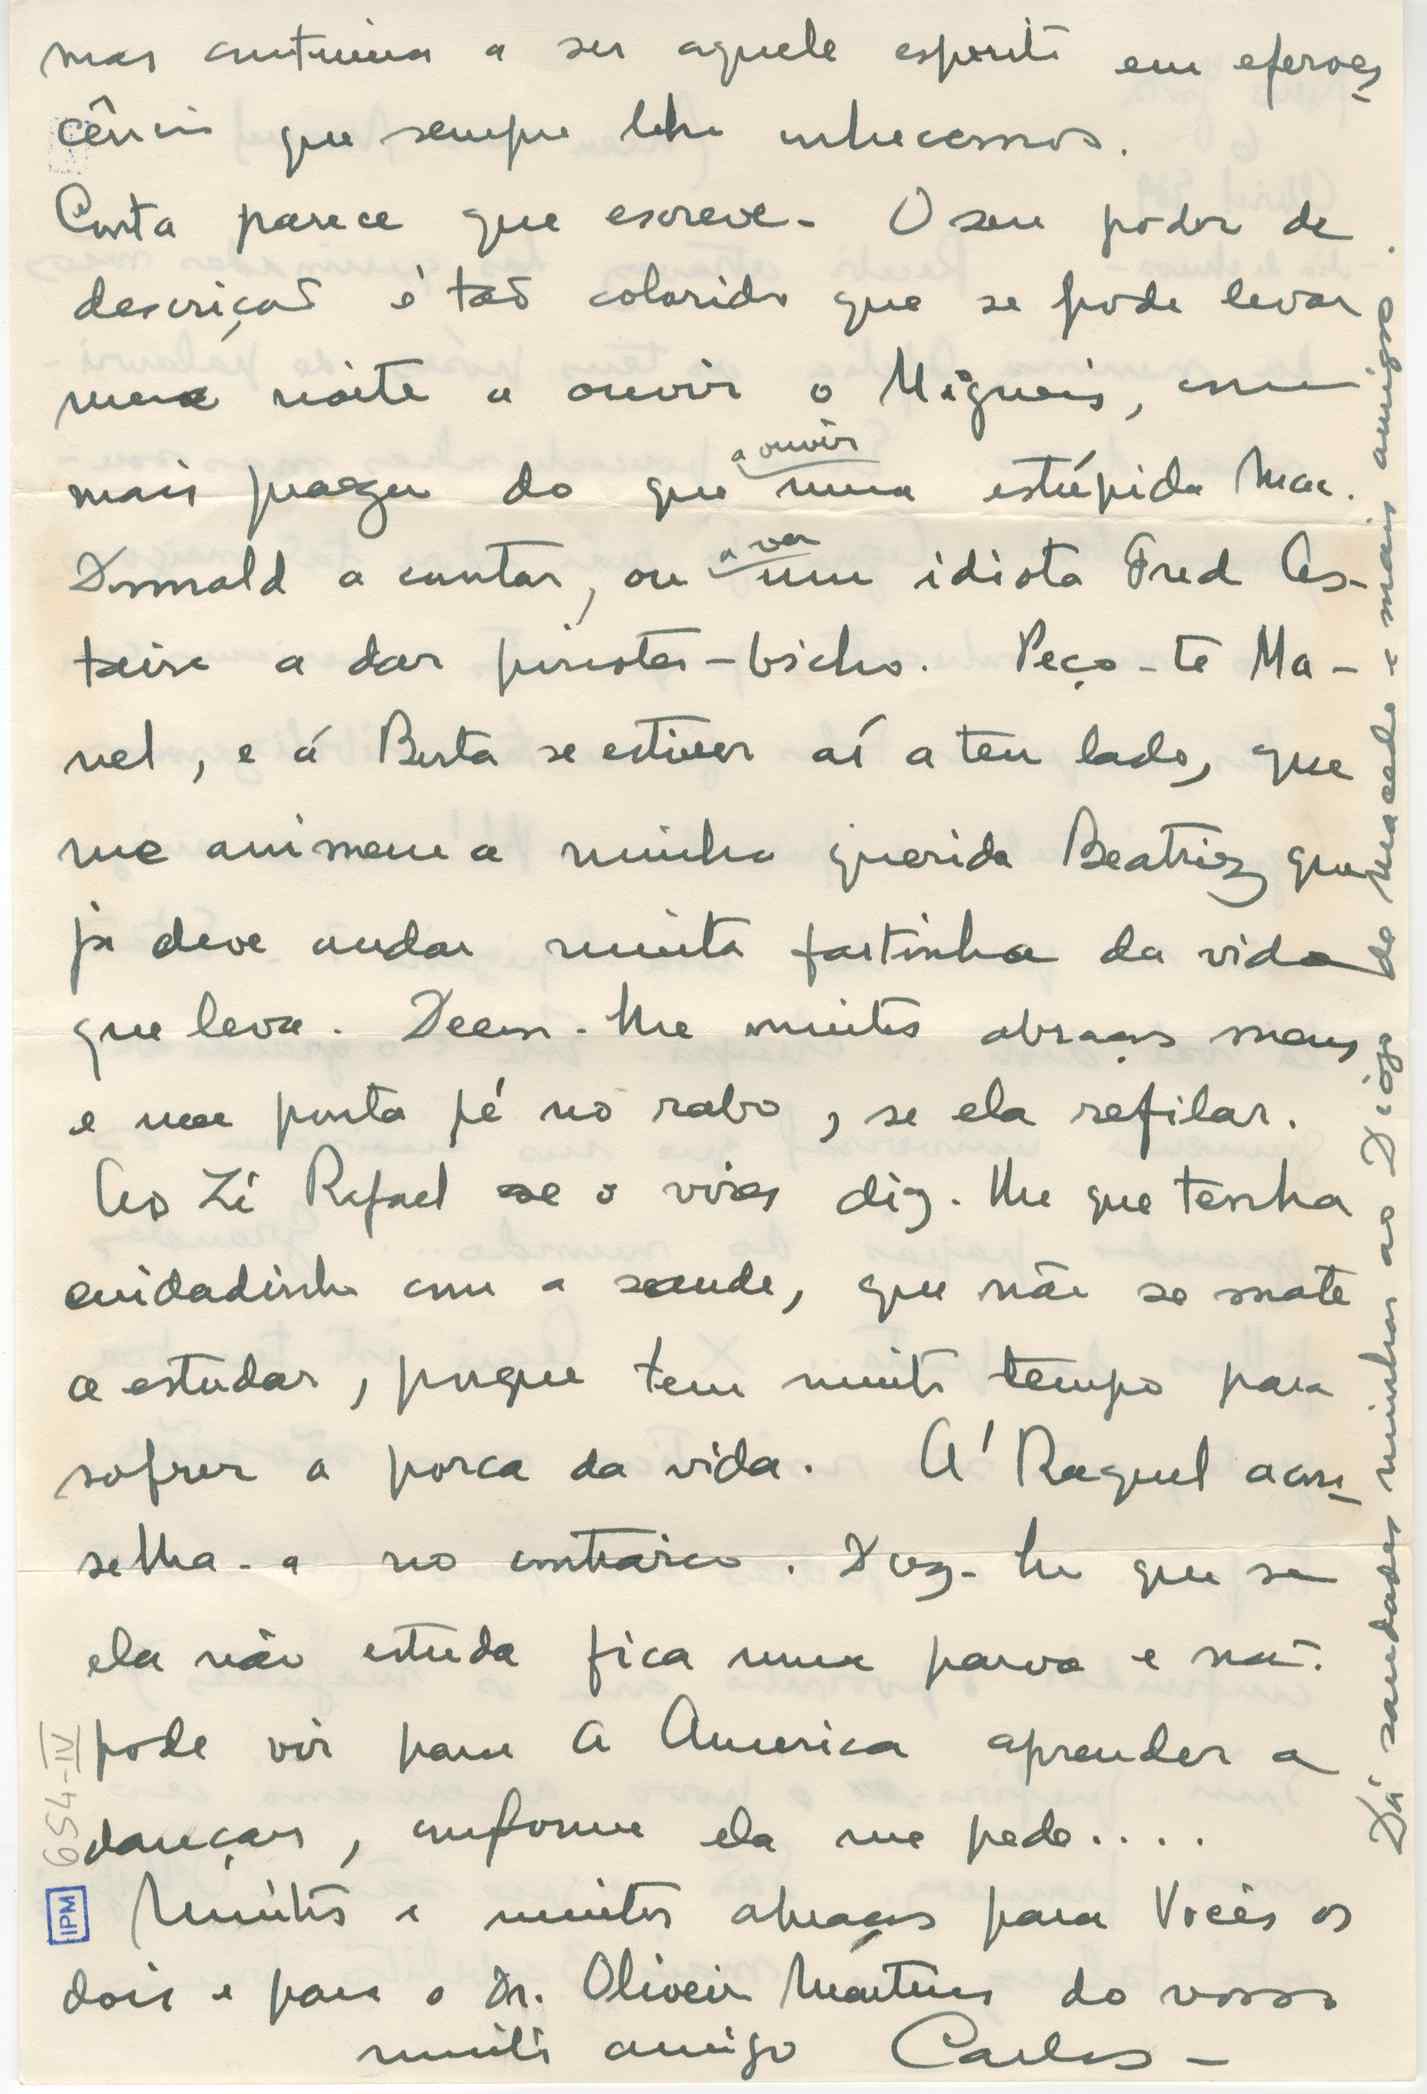 mas continua a ser aquele espirito em eferves-
cência que sempre lhe conhecemos.
Conta parece que escreve - O seu poder de
descriçaõ é taõ colorido que se pode levar
uma noite a ouvir o Migueis, com
mais prazer do que a ouvir uma estúpida Mac.
Donnald a cantar, ou a ver um idiota Fred As-
taire a dar piriotes-bicho. Peço-te Ma-
nel, e á Berta se estiver aí a teu lado, que
me animem a minha querida Beatriz que
já deve andar muito fartinha da vida
que leva. Deem-lhe muitos abraços meus
e um ponta pé no rabo, se ela refilar.
Ao Zé Rafael se o vires diz-lhe que tenha
cuidadinho com a saude, que não se mate
a estudar, porque tem muito tempo para
sofrer a porca da vida. A' Raquel acon-
selha-a no contrario. Diz-lhe que se
ela não estuda fica uma parva e naõ
pode vir para a America aprender a
dançar, conforme ela me pede....
Muitos e muitos abraços para Vocês os
dois e para o Dr. Oliveira Martins do vosso
muito amigo Carlos -
Dá saudades minhas ao Diôgo de Macedo e mais amigos.
654-IV
IPM